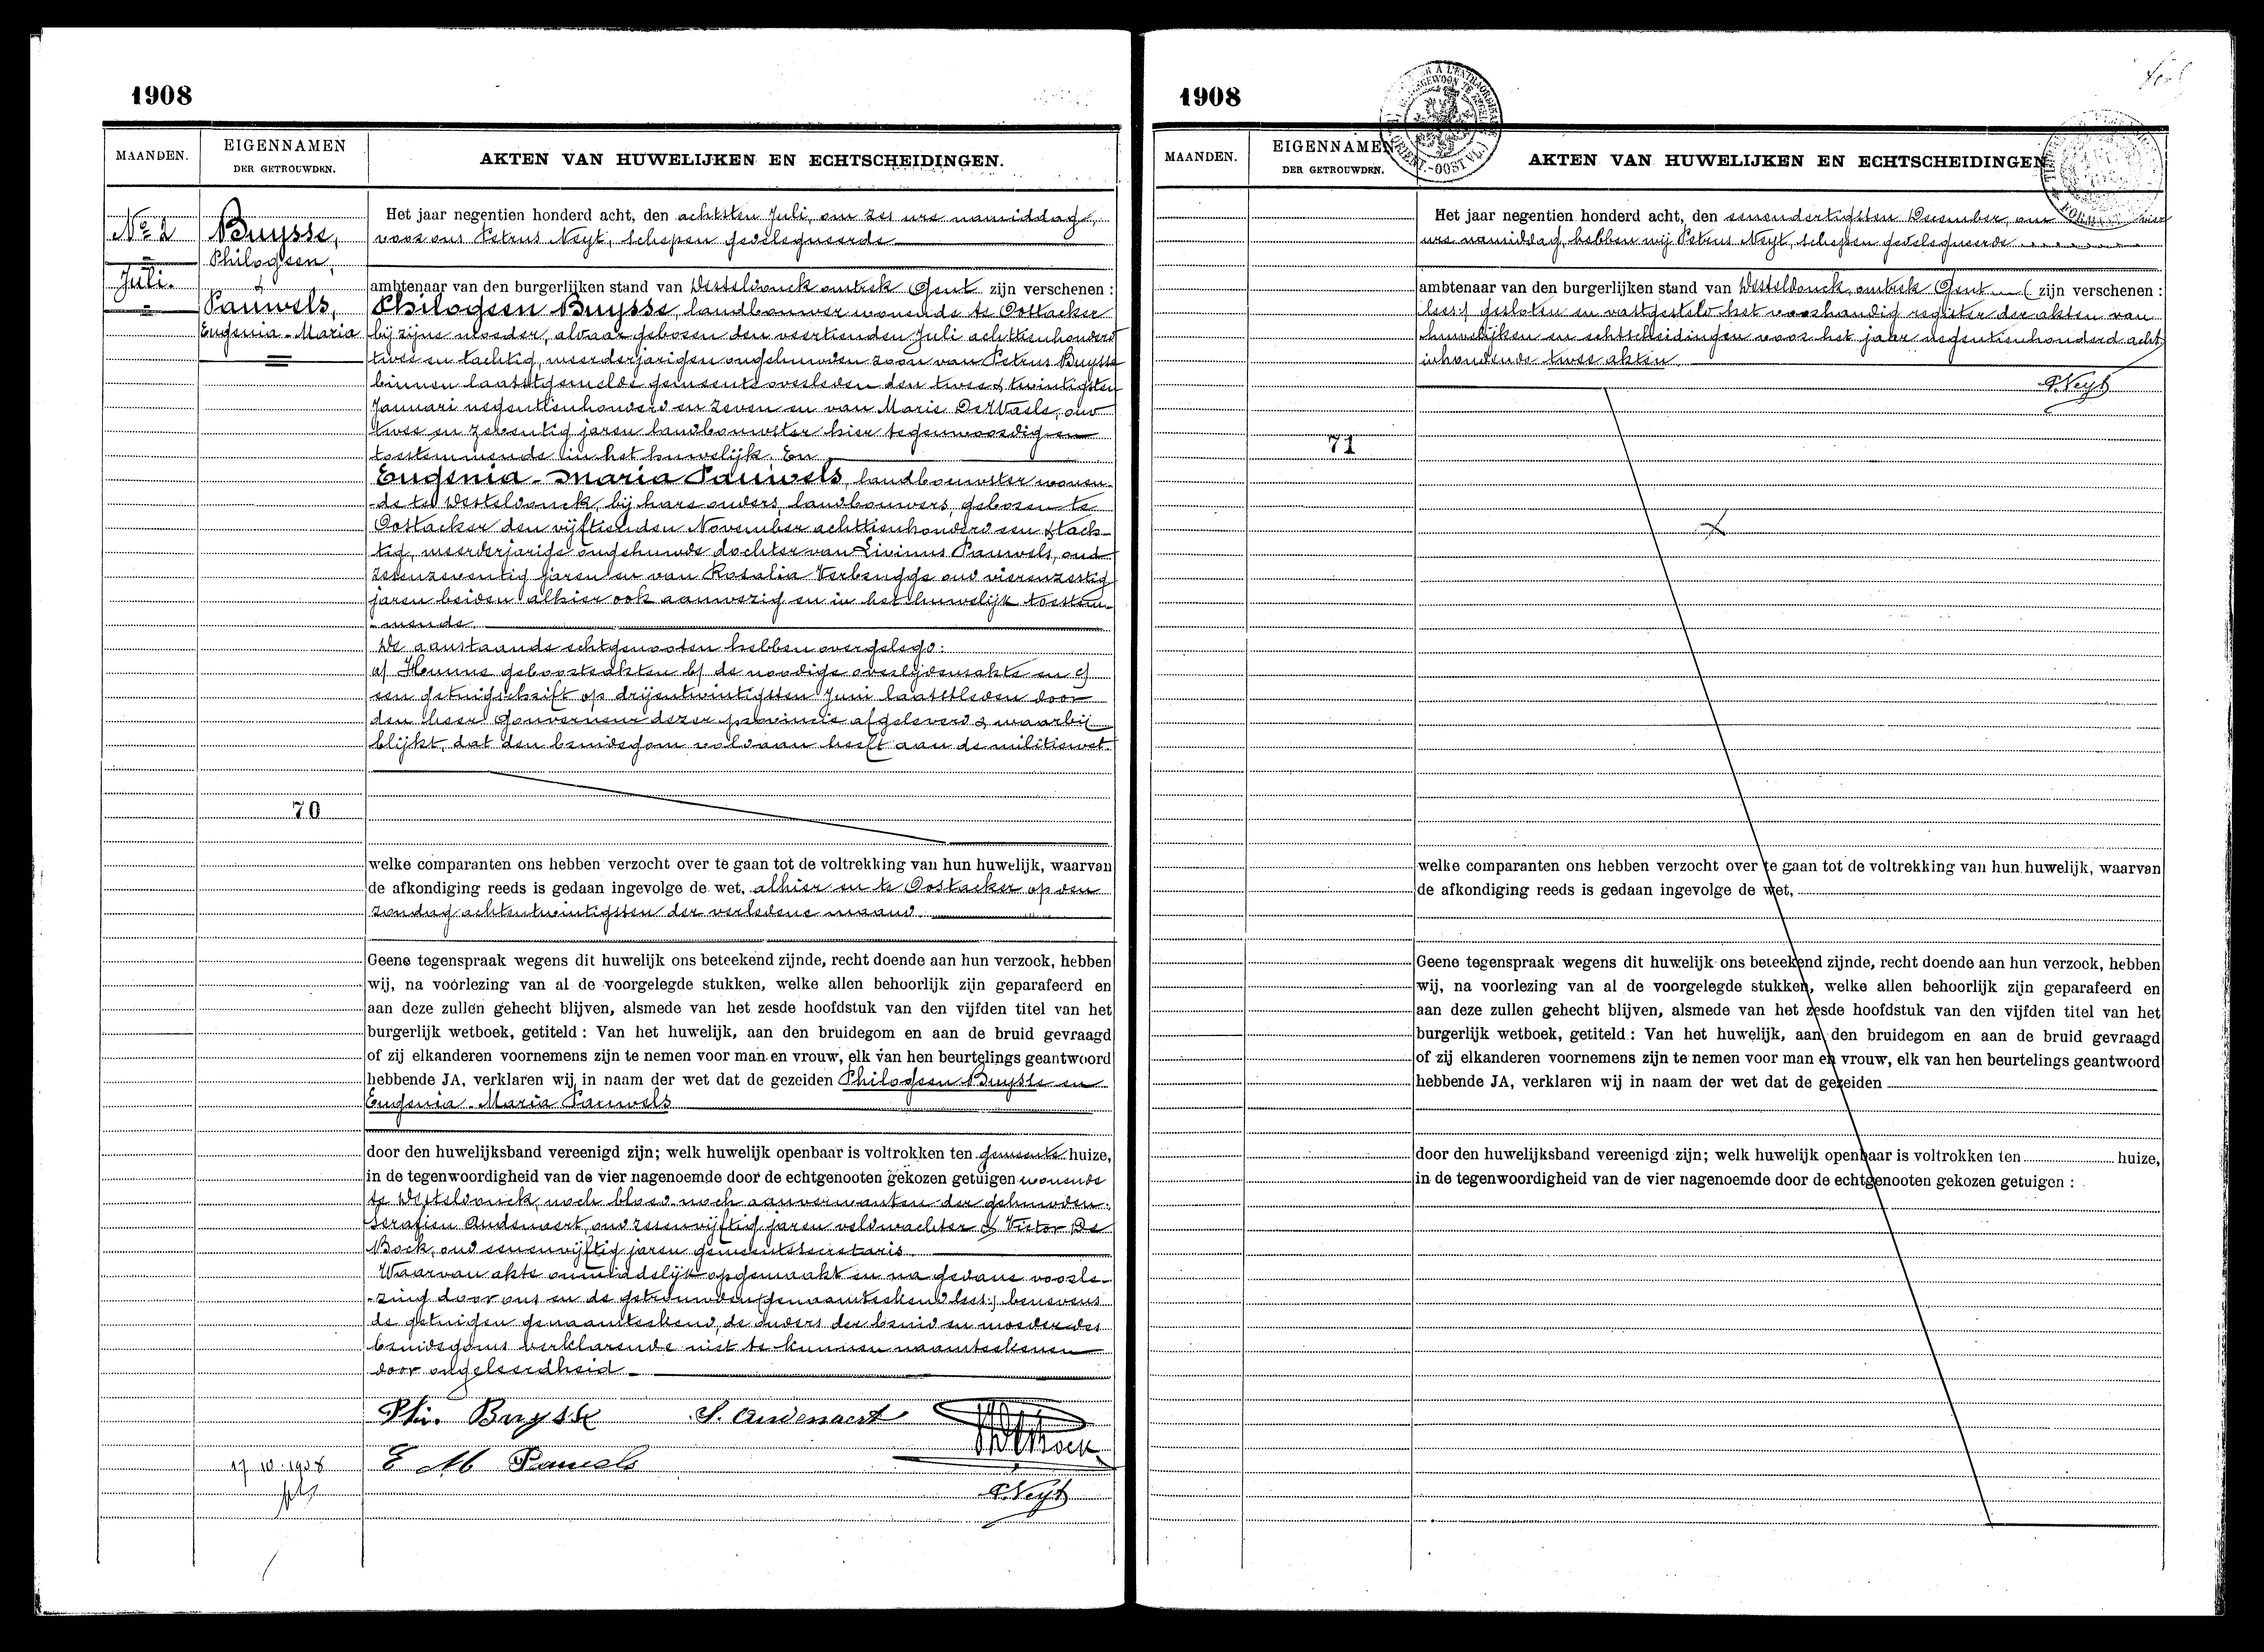 1908
MAANDEN.
EIGENNAMEN
DER GETROUWDEN.
AKTEN VAN HUWELIJKEN EN ECHTSCHEIDINGEN.
No 2
Juli.
Buysse,
Philogeen,
&
Pauwels,
Eugenia-Maria
Het jaar negentien honderd acht, den achtsten Juli, om zes ure namiddag,
voor ons Petrus Neyt, schepen gedelegueerde
ambtenaar van den burgerlijken stand van Desteldonck omtrek Gent zijn verschenen :
Philogeen Buysse, landbouwer wonende te Oostacker
bij zijne moeder, alwaar geboren den veertienden Juli achttienhonderd
twee en tachtig, meerderjarigen ongehuwden zoon van Petrus Buysse
binnen laatstgemelde gemeente overleden den twee & twintigsten
Januari negentienhonderd en zeven en van Marie DeWaele, oud
twee en zeventig jaren landbouwster hier tegenwoordig en
toestemmende in het huwelijk. En
Eugenia-Maria Pauwels, landbouwster wonen-
de te Desteldonck, bij hare ouders, landbouwers, geboren te
Oostacker den vijftienden November achttienhonderd een & tach-
tig, meerderjarige ongehuwde dochter van Livinus Pauwels, oud
zesenzeventig jaren en van Rosalia Verbrugge oud vierenzestig
jaren beiden alhier ook aanwezig en in het huwelijk toestem-
-mende
De aanstaande echtgenooten hebben overgelegd:
a) Hunne geboorteakten b) de noodige overlijdensakte en c)
een getuigschrift op drijentwintigsten Juni laatstleden door
den heer Gouverneur dezer provincie afgeleverd & waarbij
blijkt, dat den bruidegom voldaan heeft aan de militiewet.
70
welke comparanten ons hebben verzocht over te gaan tot de voltrekking van hun huwelijk, waarvan
de afkondiging reeds is gedaan ingevolge de wet, alhier en te Oostacker op den
zondag achtentwintigsten der verledene maand
Geene tegenspraak wegens dit huwelijk ons beteekend zijnde, recht doende aan hun verzoek, hebben
wij, na voorlezing van al de voorgelegde stukken, welke allen behoorlijk zijn geparafeerd en
aan deze zullen gehecht blijven, alsmede van het zesde hoofdstuk van den vijfden titel van het
burgerlijk wetboek, getiteld : Van het huwelijk, aan den bruidegom en aan de bruid gevraagd
of zij elkanderen voornemens zijn te nemen voor man en vrouw, elk van hen beurtelings geantwoord
hebbende JA, verklaren wij in naam der wet dat de gezeiden Philogeen Buysse en
Eugenia-Maria Pauwels
door den huwelijksband vereenigd zijn; welk huwelijk openbaar is voltrokken ten gemeente huize,
in de tegenwoordigheid van de vier nagenoemde door de echtgenooten gekozen getuigen wonende
te Desteldonck, noch bloed noch aanverwanten der gehuwden:
Serafien Audenaert, oud zesenvijftig jaren veldwachter & Victor De
Bock, oud eenenvijftig jaren gemeentesecretaris
Waarvan akte onmiddelijk opgemaakt en na gedane voorle-
-zing door ons en de getrouwden (genaamteekend lees:) benevens
de getuigen genaamteekend, de ouders der bruid en moeder des
bruidegoms verklarende niet te kunnen naamteekenen
door ongeleerdheid.
Phi. Buysse S. Audenaert
E M Pauwels
P. Neyt
17 10-1908
1908
MAANDEN.
EIGENNAMEN
DER GETROUWDEN.
AKTEN VAN HUWELIJKEN EN ECHTSCHEIDINGEN
Het jaar negentien honderd acht, den eenendertigsten December, om vier
ure namiddag, hebben wij Petrus Neyt, schepen gedelegueerde
ambtenaar van den burgerlijken stand van Desteldonck, omtrek Gent ( zijn verschenen :
lees:) gesloten en vastgesteld het voorhandig register der akten van
huwelijken en echtscheidingen voor het jaar negentienhonderd acht
inhoudende twee akten.
P. Neyt
71
welke comparanten ons hebben verzocht over te gaan tot de voltrekking van hun huwelijk, waarvan
de afkondiging reeds is gedaan ingevolge de wet,
Geene tegenspraak wegens dit huwelijk ons beteekend zijnde, recht doende aan hun verzoek, hebben
wij, na voorlezing van al de voorgelegde stukken, welke allen behoorlijk zijn geparafeerd en
aan deze zullen gehecht blijven, alsmede van het zesde hoofdstuk van den vijfden titel van het
burgerlijk wetboek, getiteld : Van het huwelijk, aan den bruidegom en aan de bruid gevraagd
of zij elkanderen voornemens zijn te nemen voor man en vrouw, elk van hen beurtelings geantwoord
hebbende JA, verklaren wij in naam der wet dat de gezeiden
door den huwelijksband vereenigd zijn; welk huwelijk openbaar is voltrokken ten huize,
in de tegenwoordigheid van de vier nagenoemde door de echtgenooten gekozen getuigen :